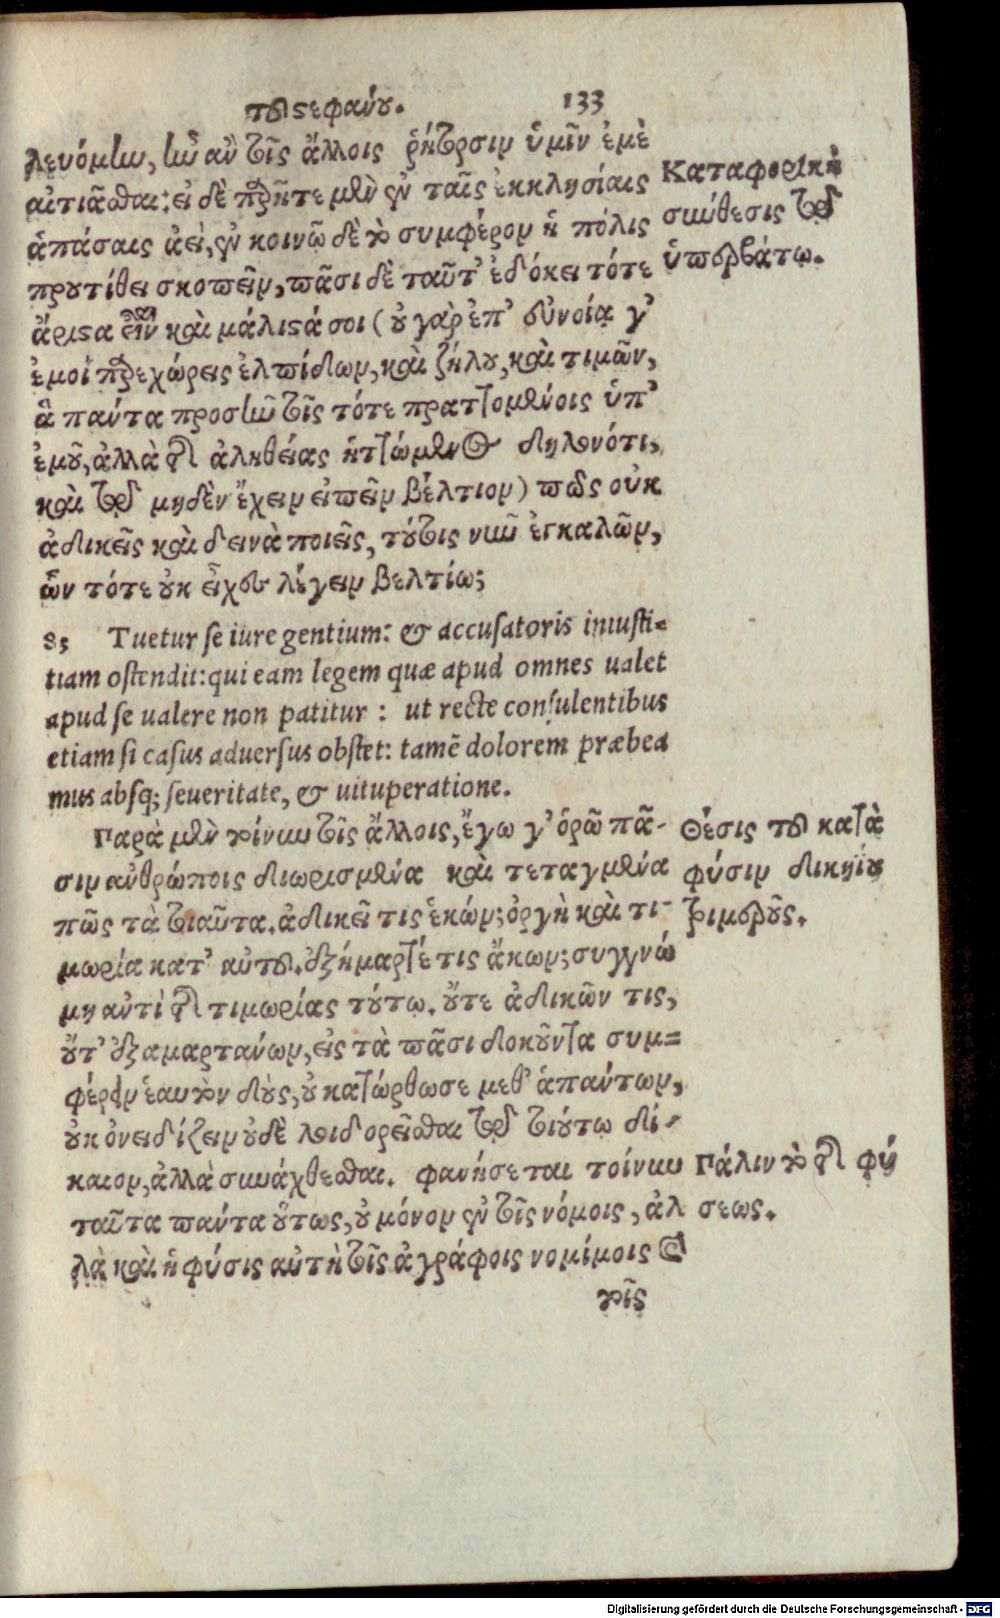 τοῦ στεφάνου. 133
λευόμην, ἦν ἂν τοῖς ἄλλοις ῥήτορσιν ὑμῖν ἐμὲ
αἰτιᾶσθαι· εἰ δὲ παρῆτε μὲν ἐν ταῖς ἐκκλησίαις
ἁπάσαις ἀεὶ, ἐν κοινῷ δὲ τὸ συμφέρον ἡ πόλις
προυτίθει σκοπεῖν, πᾶσι δὲ ταῦτ' ἐδόκει τότε
ἄριστα εἶναι καὶ μάλιστά σοι (οὐ γὰρ ἐπ' εὐνοίᾳ γ'
ἐμοὶ παρεχώρεις ἐλπίδων, καὶ ζήλου, καὶ τιμῶν,
ἃ πάντα προσῆν τοῖς τότε πραττομένοις ὑπ'
ἐμοῦ, ἀλλὰ τῆς ἀληθείας ἡττώμενος δηλονότι,
καὶ τῷ μηδὲν ἔχειν εἰπεῖν βέλτιον) πῶς οὐκ
ἀδικεῖς καὶ δεινὰ ποιεῖς, τούτοις νῦν ἐγκαλῶν,
ὧν τότε οὐκ εἶχες λέγειν βελτίω;
Καταφορικὴ
σύνθεσις τῷ
ὑπερβάτῳ.
85 Tuetur se iure gentium: & accusatoris iniusti-
tiam ostendit: qui eam legem quæ apud omnes ualet
apud se ualere non patitur : ut recte consulentibus
etiam si casus aduersus obstet: tamē dolorem præbea
mus absq; seueritate, & uituperatione.
Παρὰ μὲν τοίνυν τοῖς ἄλλοις, ἔγω γ' ὁρῶ πᾶ-
σιν ἀνθρώποις διωρισμένα καὶ τεταγμένα
πῶς τὰ τοιαῦτα. ἀδικεῖ τις ἑκών; ὀργὴ καὶ τι-
μωρία κατ' αὐτοῦ. ἐξήμαρτέ τις ἄκων; συγγνώ
μη ἀντὶ τῆς τιμωρίας τούτῳ. οὔτε ἀδικῶν τις,
οὔτ' ἐξαμαρτάνων, εἰς τὰ πᾶσι δοκοῦντα συμ=
φέρειν ἑαυτὸν δοὺς, οὐ κατώρθωσε μεθ' ἁπάντων,
οὐκ ὀνειδίζειν οὐδὲ λοιδορεῖσθαι τῷ τοιούτῳ δί-
καιον, ἀλλὰ συνάχθεσθαι. φανήσεται τοίνυν
ταῦτα πάντα οὕτως, οὐ μόνον ἐν τοῖς νόμοις, ἀλ
λὰ καὶ ἡ φύσις αὐτὴ τοῖς ἀγράφοις νομίμοις καὶ
τοῖς
Θέσις τοῦ κατὰ
φύσιν δικαίου
τριμερῶς.
Πάλιν τὸ τῆς φύ
σεως.
Digitalisierung gefördert durch die Deutsche Forschungsgemeinschaft - DFG